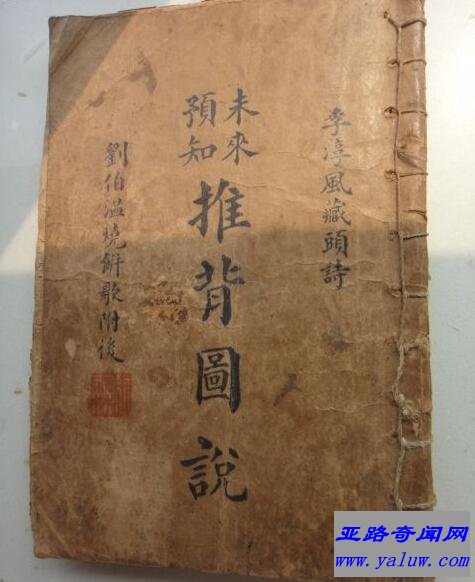 李淳風藏頭詩
未來
預知
推背圖說
劉伯溫燒餅歌附後
亚路奇闻网
www.yaluw.com